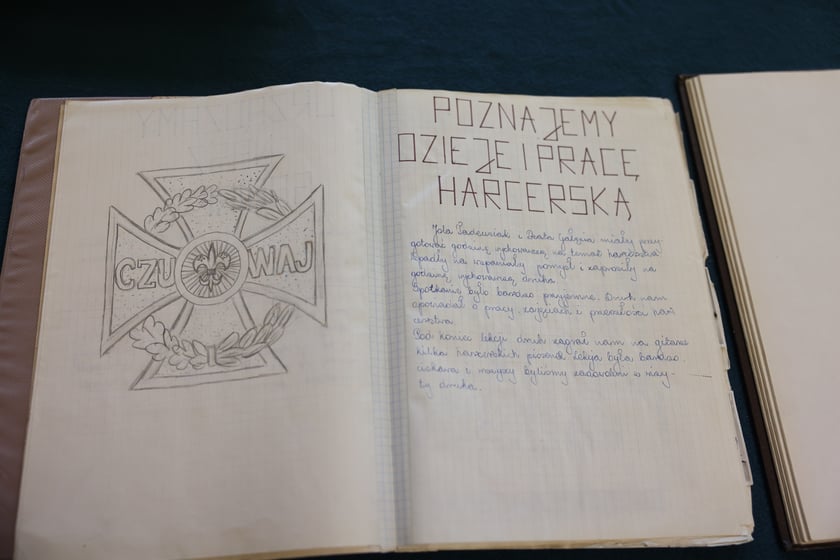 CZUWAJ
POZNAJEMY
DZIEJE I PRACĘ
HARCERSKĄ
Jola i Beata miały przy-
gotować godzinę wychowawczą na temat harcerstwa.
Wpadły na wspaniały pomysł i zaprosiły na
godzinę wychowawczą druha.
Spotkanie było bardzo przyjemne. Druh nam
opowiadał o pracy, zajęciach i przeszłości har-
cerstwa.
Pod koniec lekcji druh zagrał nam na gitarze
kilka harcerskich piosenek. Lekcja była bardzo
ciekawa i wszyscy byliśmy zadowoleni z wizy-
ty druha.